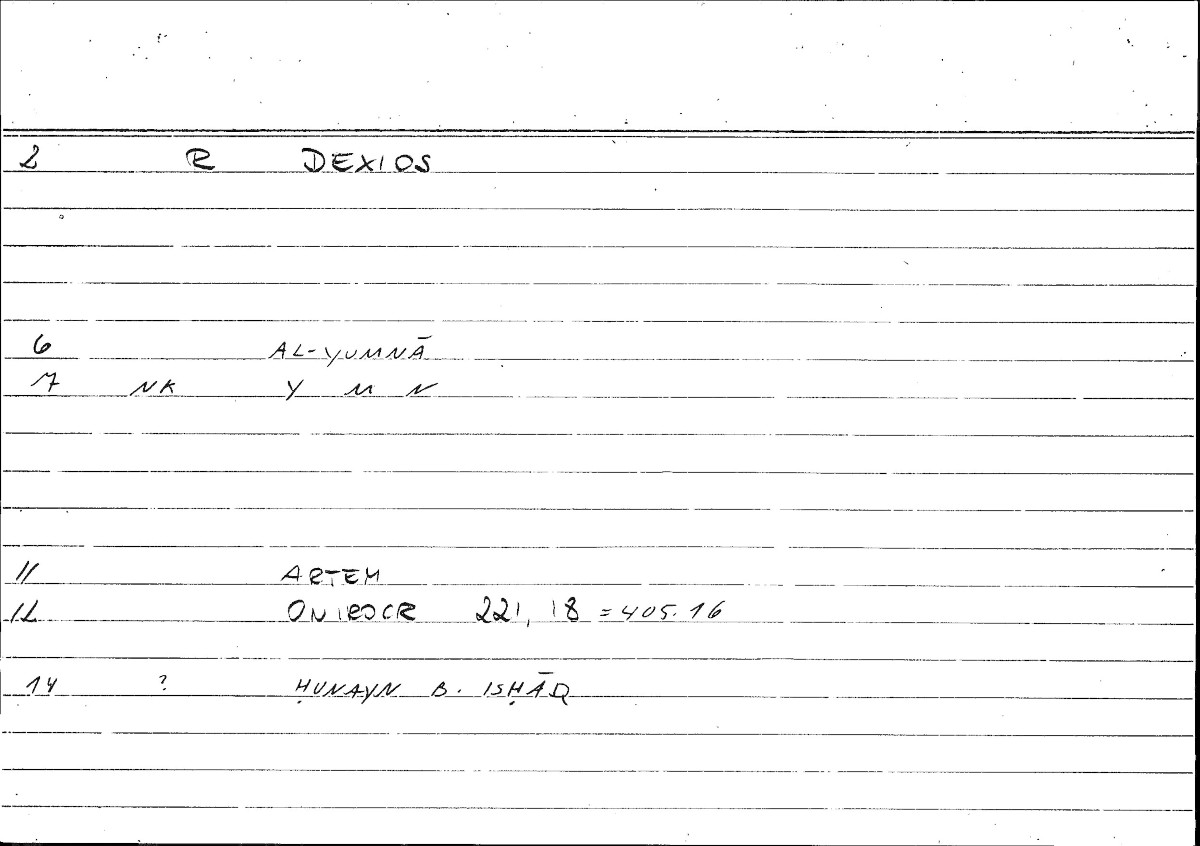 2 R DEXIOS
6 AL-YUMNĀ
7 NK Y M N
11 ARTEM
12 ONIROCR 221, 18 = 405.16
14 ? ḤUNAYN B. ISḤĀQ